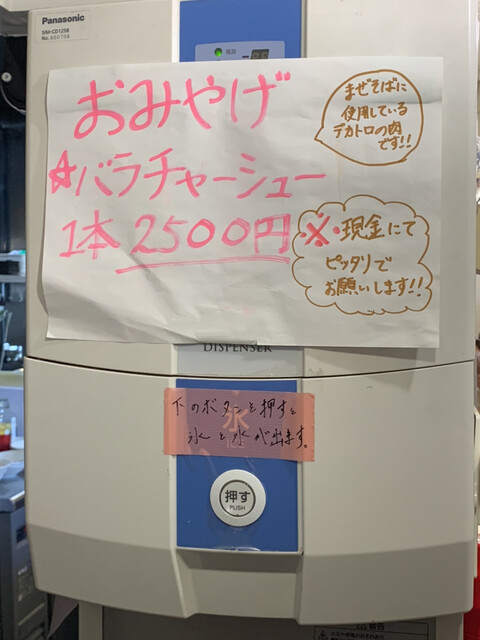 Panasonic
SIM-CD125B
No. 600708
おみやげ
☆バラチャーシュー
1本 2500円
まぜそばに
使用している
デカトロの肉
です!!
※現金にて
ピッタリで
お願いします!!
DISPENSER
下のボタンを押すと
氷と水が出ます。
氷
押す
PUSH